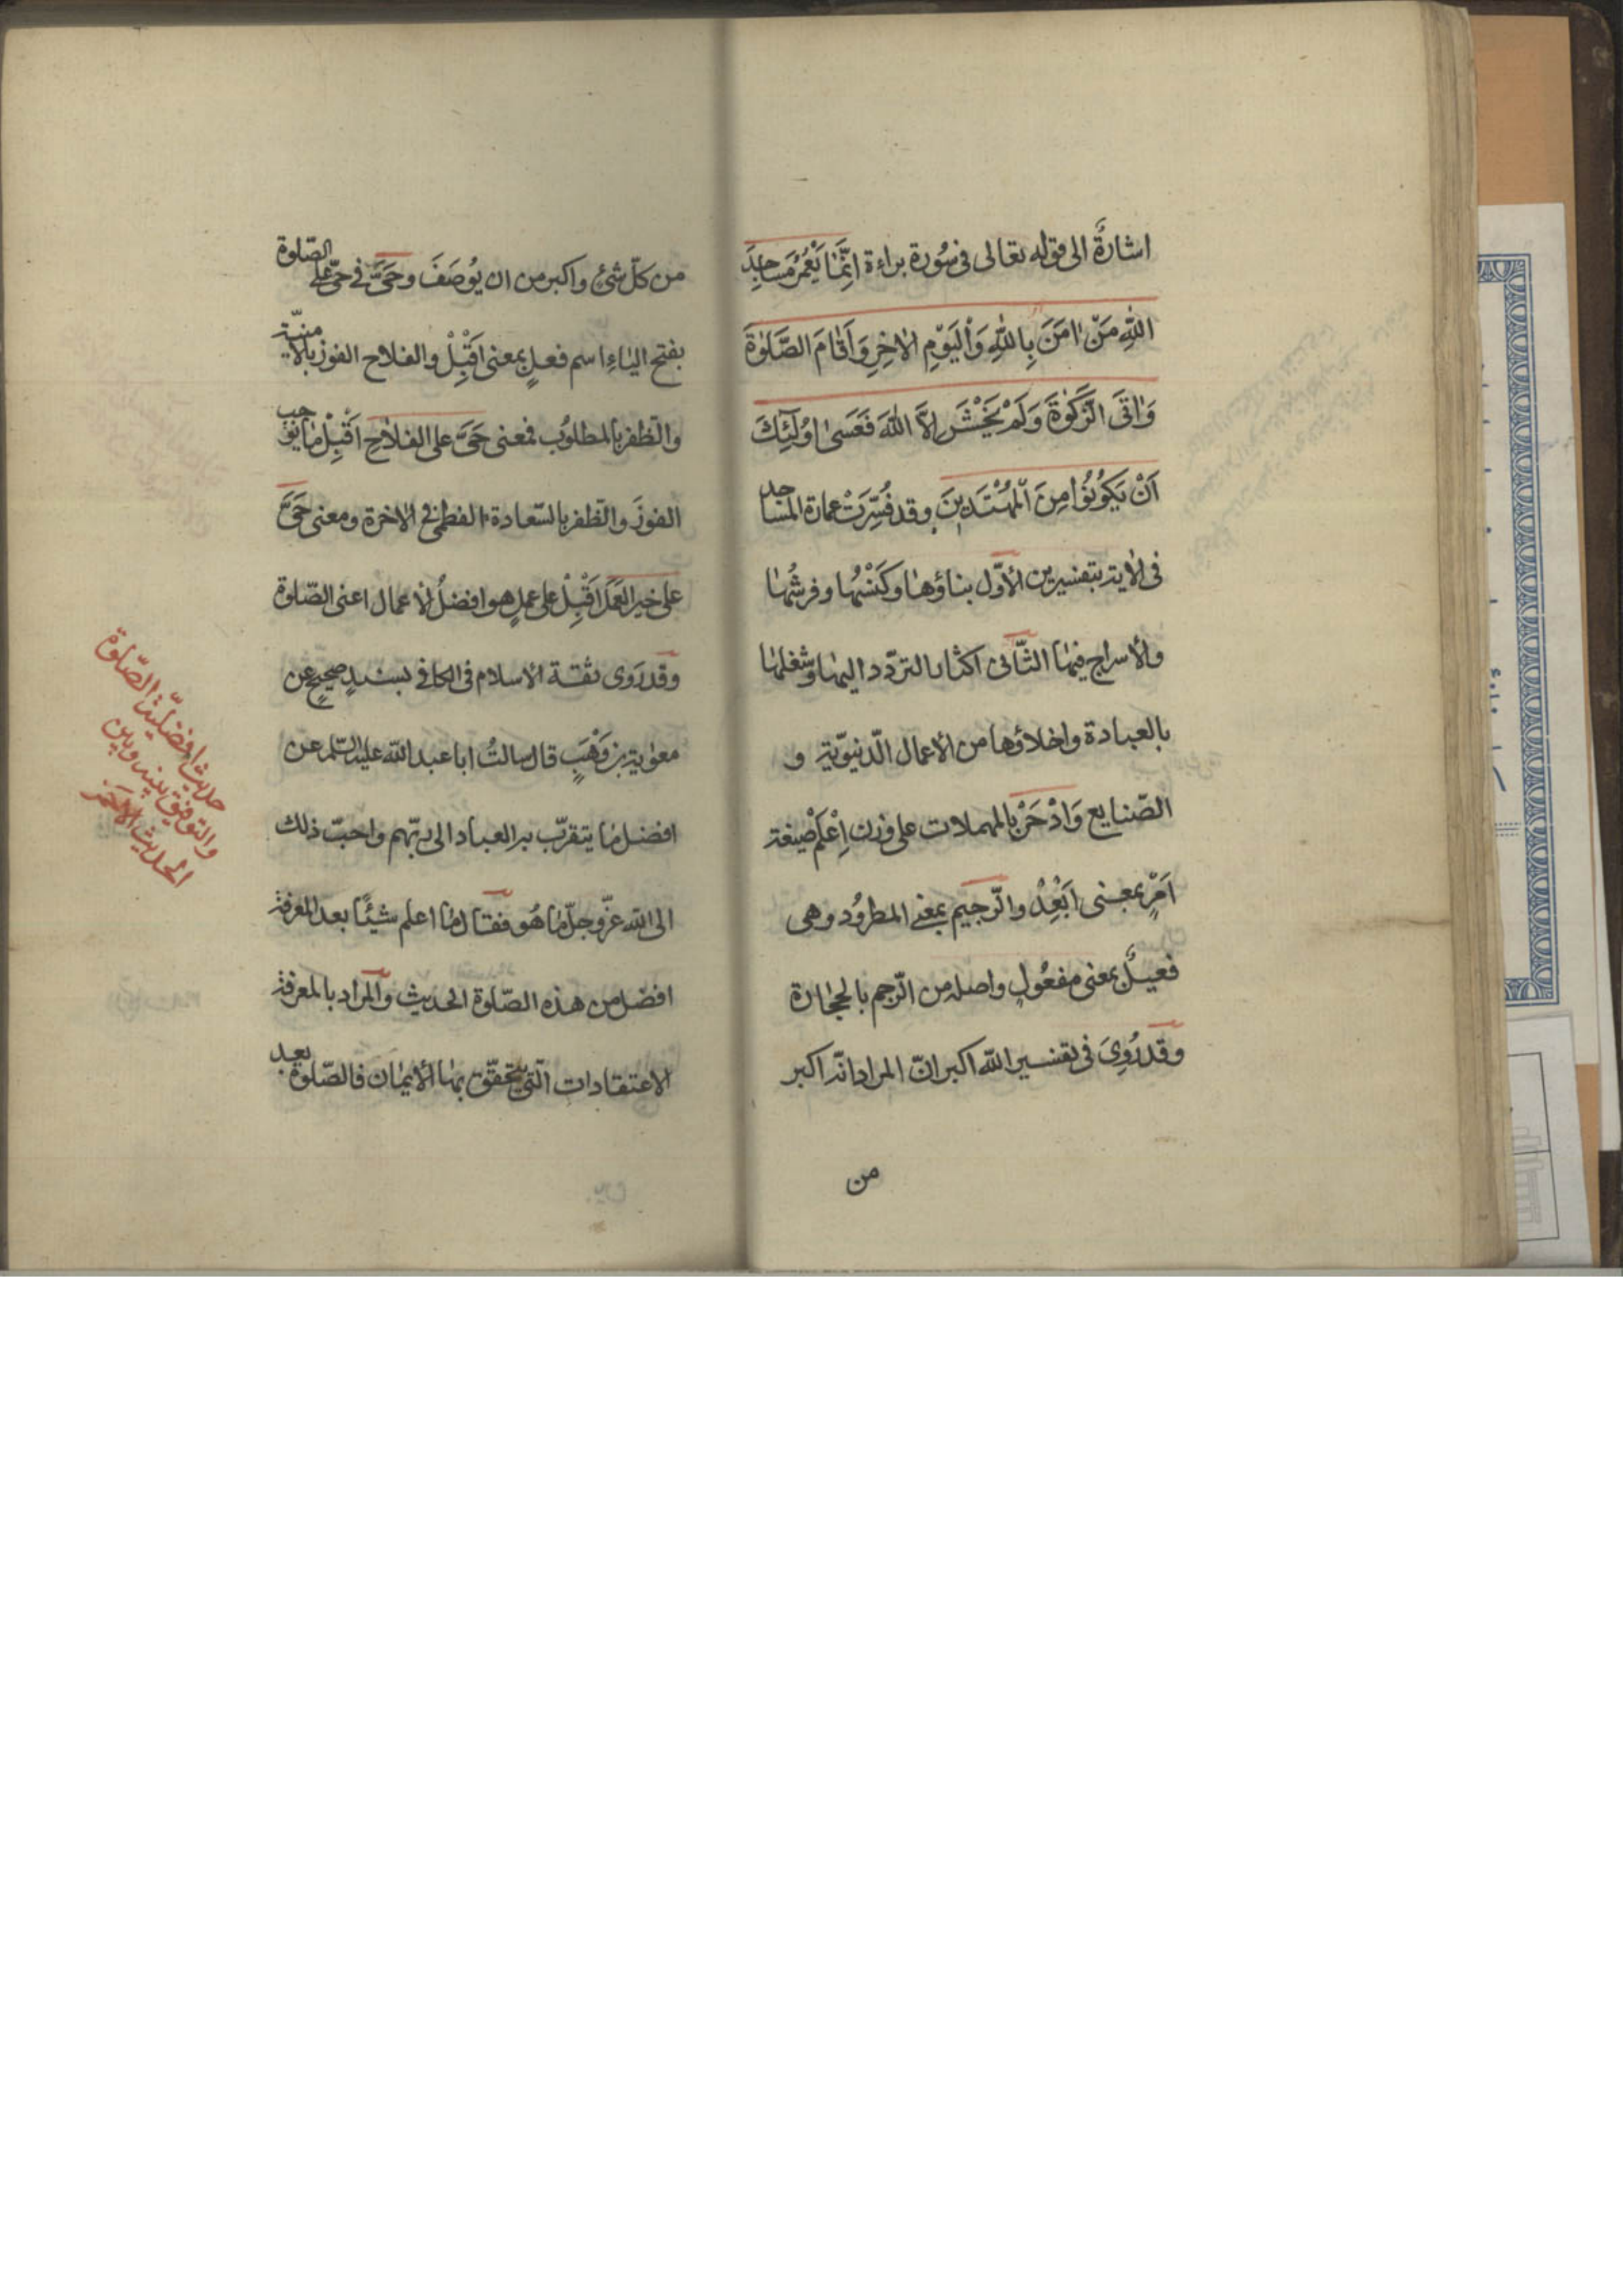 اشارةٌ الى قوله تعالى فى سُورة براءة اِنَّمٰا يَعْمُرُ مَسٰاجِدَ
اللهِ مَنْ اٰمَنَ بِاللهِ وَالْيَوْمِ الاٰخِرِ وَاَقٰامَ الصَّلوٰةَ
وَاٰتَى الزَّكوٰةَ وَلَمْ يَخْشَ اِلاَّ اللهَ فَعَسٰى اُولٰئِكَ
اَنْ يَكُونُوا مِنَ الْمُهْتَدِينَ وقد فُسِّرَتْ عمارة المسٰاجد
فى الاٰية بتفسيرين الأوّل بناؤهٰا وكَنْسُهٰا وفرشُهٰا
والأسراج فيهٰا الثّانى اكثار التردّد اليهٰا وشغلهٰا
بالعبادة واخلاؤها من الأعمال الدّنيويّة و
الصّنايع وَادْحَرْ بالمهملات على وزن اِعْلَمْ صيغة
اَمْرٍ بمعنى اَبْعِدْ والرّجيم بمعنى المطرُود وهى
فعيلٌ بمعنى مفعُولٍ واصله من الرّجم بالحجٰارة
وقد رُوِىَ فى تفسير الله اكبر انّ المراد انّه اكبر
من
من كلّ شئ واكبر من ان يُوصَفَ وحَىَّ فى حىّ على الصّلوة
بفتح اليٰاءِ اسم فعلٍ بمعنى اَقْبِلْ والفلاح الفوز بالأمنيّة
والظفر بالمطلوُب فمعنى حَىَّ على الفلاحِ اَقْبِلْ مٰا يوُجب
الفوزَ والظفر بالسّعادة العظمى فى الاخرة ومعنى حَىَّ
على خير العَمَل اَقْبِلْ على عملٍ هو افضلُ الأعمال اعنى الصّلوة
وقد رَوى ثقة الاسلام فى الكافى بسندٍ صحيحٍ عن
معوٰية بن وَهْبٍ قال سالتُ ابا عبد الله عليه السّلم عن
افضل مٰا يتقرّب به العباد الى ربّهم واحبّ ذلك
الى الله عزّ وجلّ مٰا هُو فقال مٰا اعلم شيئًا بعد المعرفة
افضل من هذه الصّلوة الحديث والمراد بالمعرفة
الاعتقادات الّتى يتحقّق بهٰا الأيمٰان فالصّلوة بعد
حديث افضليّة الصّلوة
والتوفيق بينه وبين
الحديث الآخر